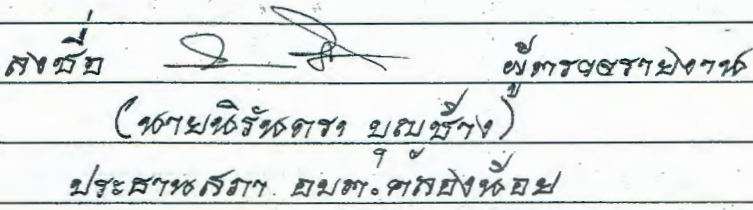 ลงชื่อ ผู้ตรวจรายงาน
(นายนิรันดร บุญช่าง)
ประธานสภา อบต.คลองน้อย